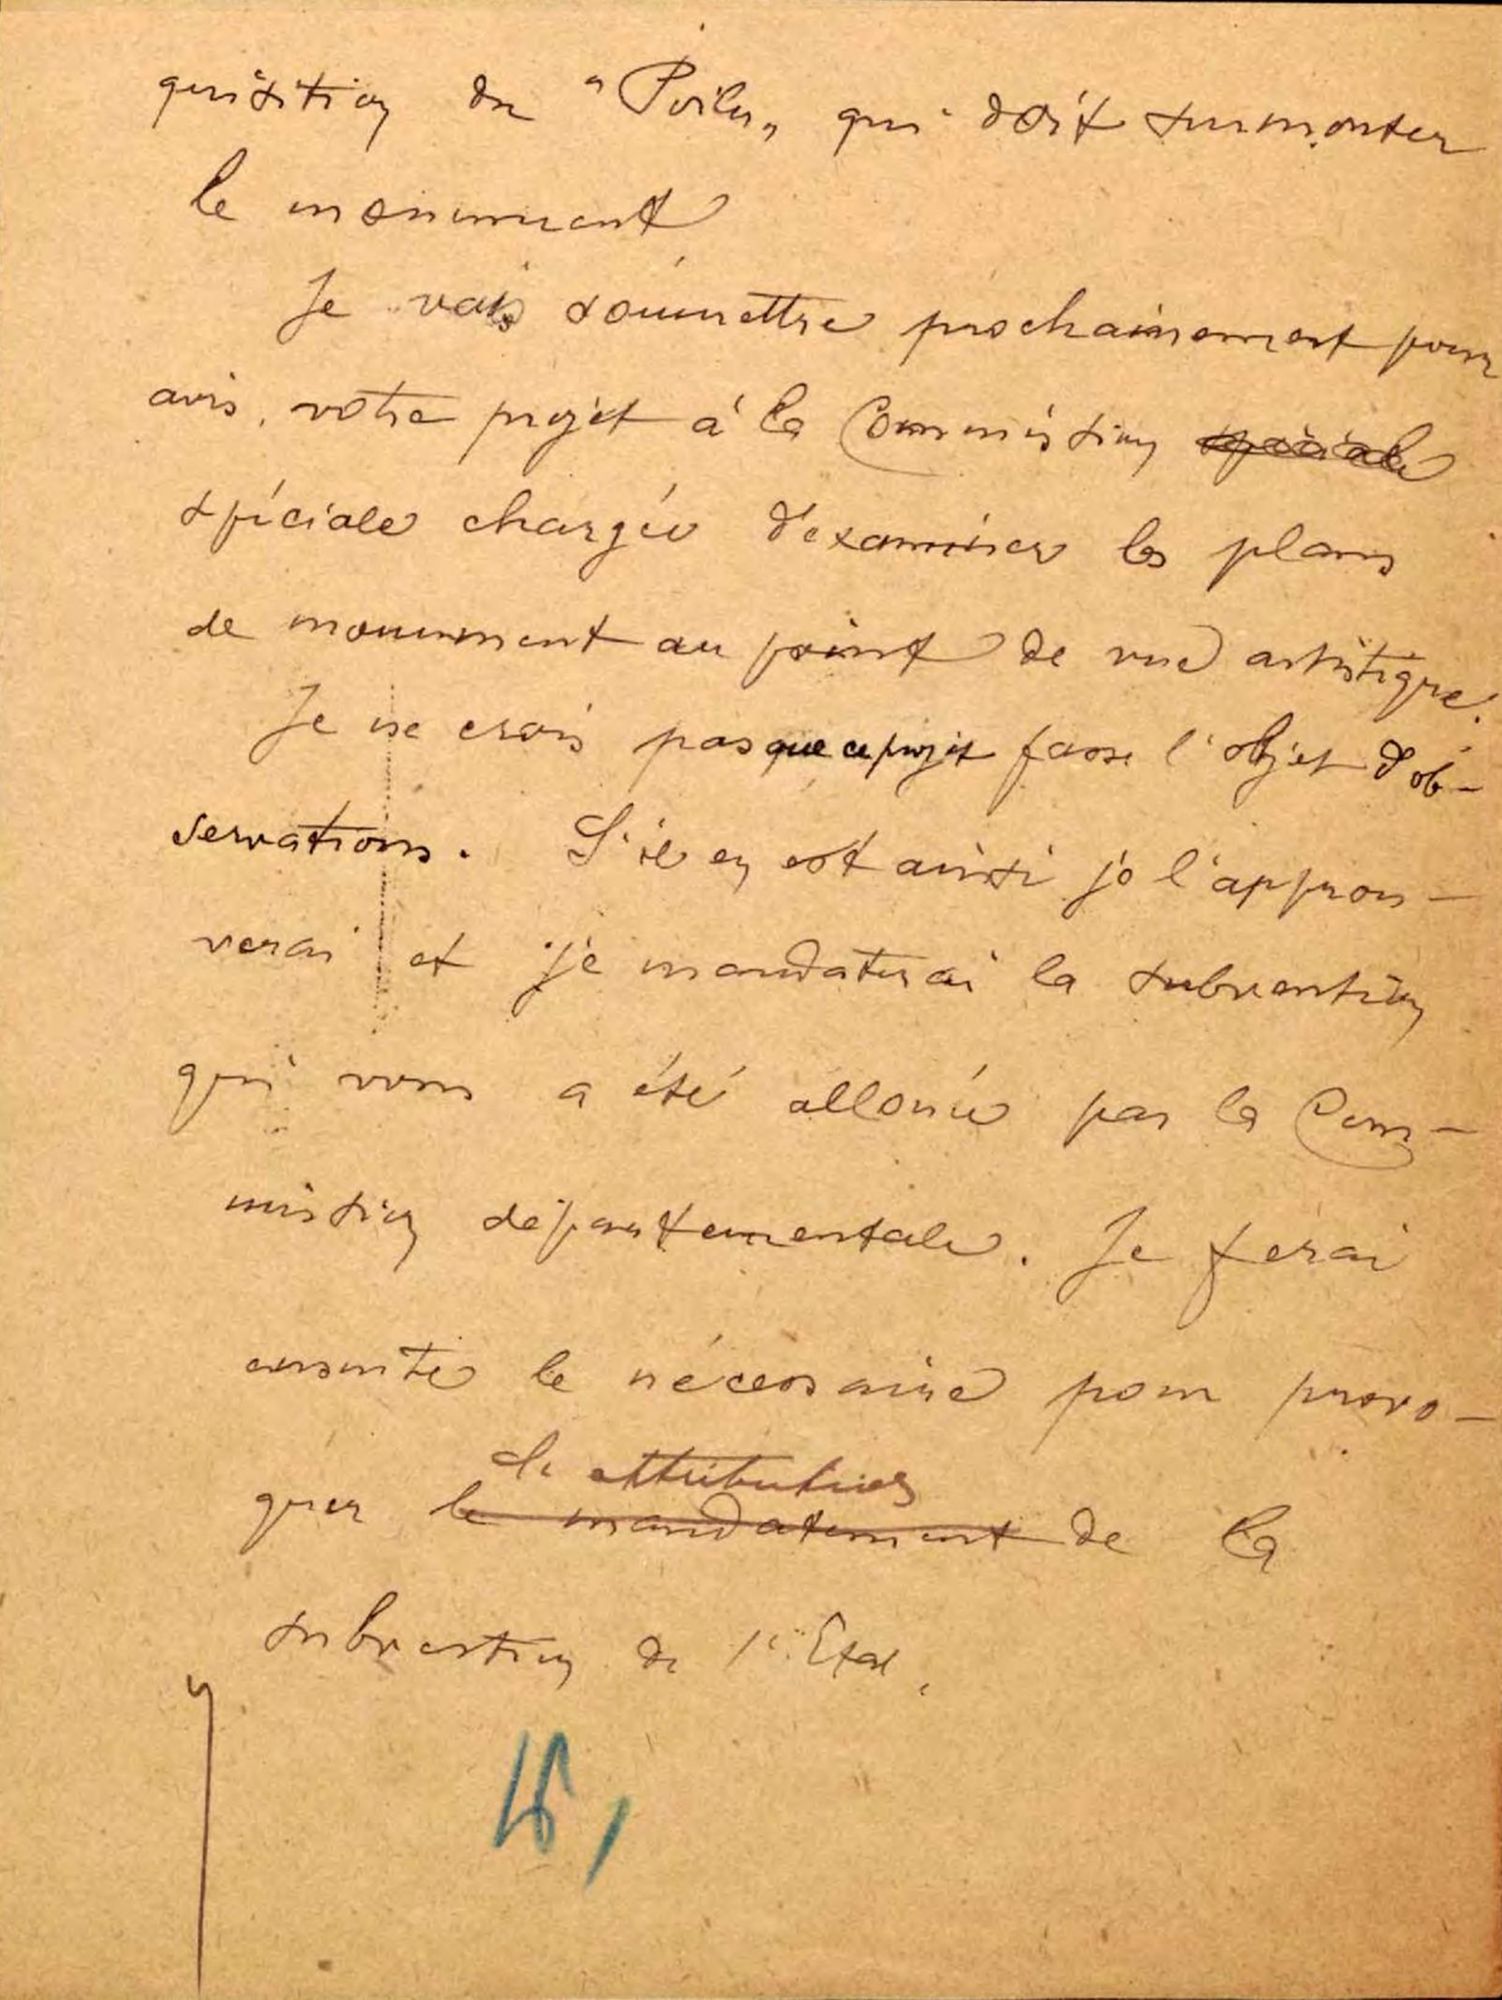 quisition du "Poilu„ qui doit surmonter
le monument
Je vais soumettre prochainement pour
avis, votre projet à la Commission spéciale
spéciale chargée d'examiner les plans
de monument au point de vue artistique.
Je ne crois pas que ce projet fasse l'objet d'ob-
servations. S'il en est ainsi je l'approu-
verai et je mandaterai la subvention
qui vous a été allouée par la Com-
mission départementale. Je ferai
ensuite le nécessaire pour provo-
attribution
quer le mandatement de la
subvention de l'Etat.